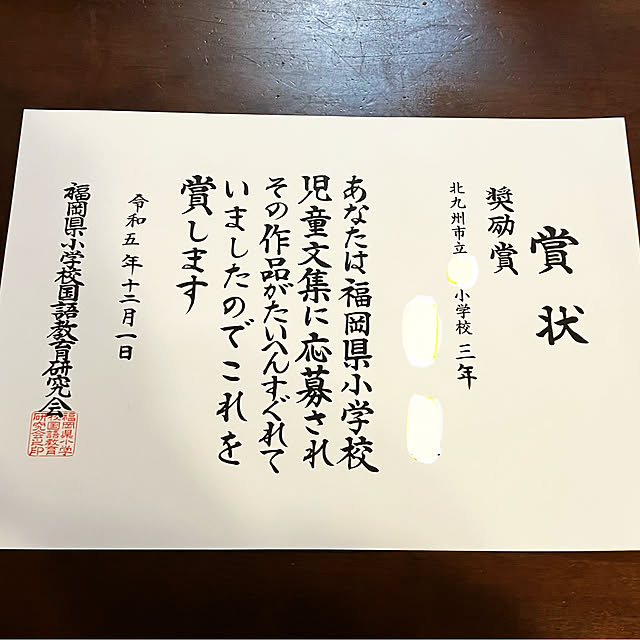 賞状
奨励賞
北九州市立 小学校 三年
あなたは福岡県小学校
児童文集に応募され
その作品がたいへんすぐれて
いましたのでこれを
賞します
令和五年十二月一日
福岡県小学校国語教育研究会
福岡県小学
校国語教育
研究会之印